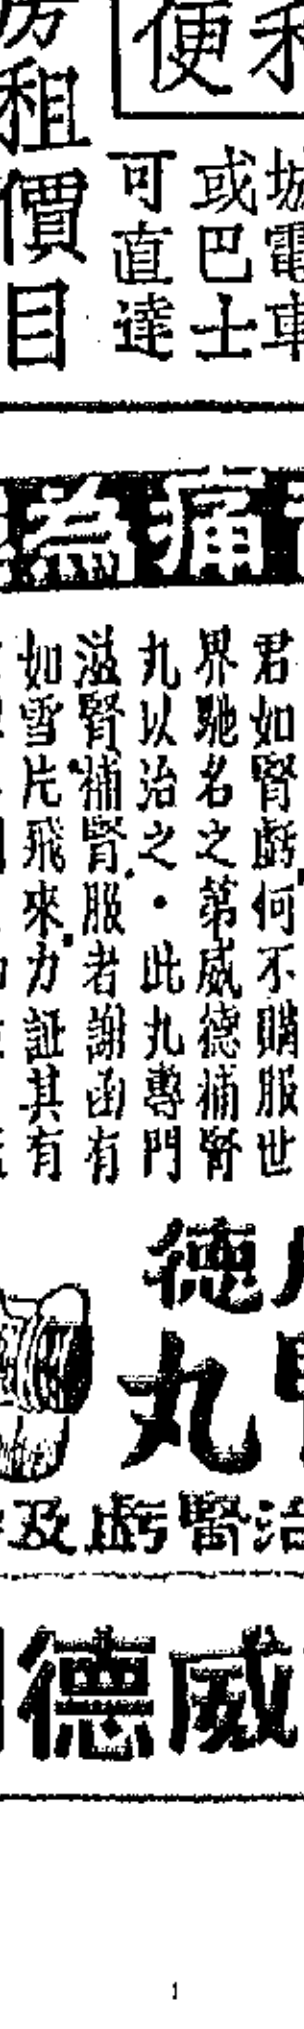 便利
城電車
或巴士
可直達
房租價目
痛為
君如腎虧何不購服世
界馳名之第威德補腎
丸以治之・此丸專門
滋腎補腎・服者謝函有
如雪片飛來・力証其有
德
丸
治腎虧及
威德
1